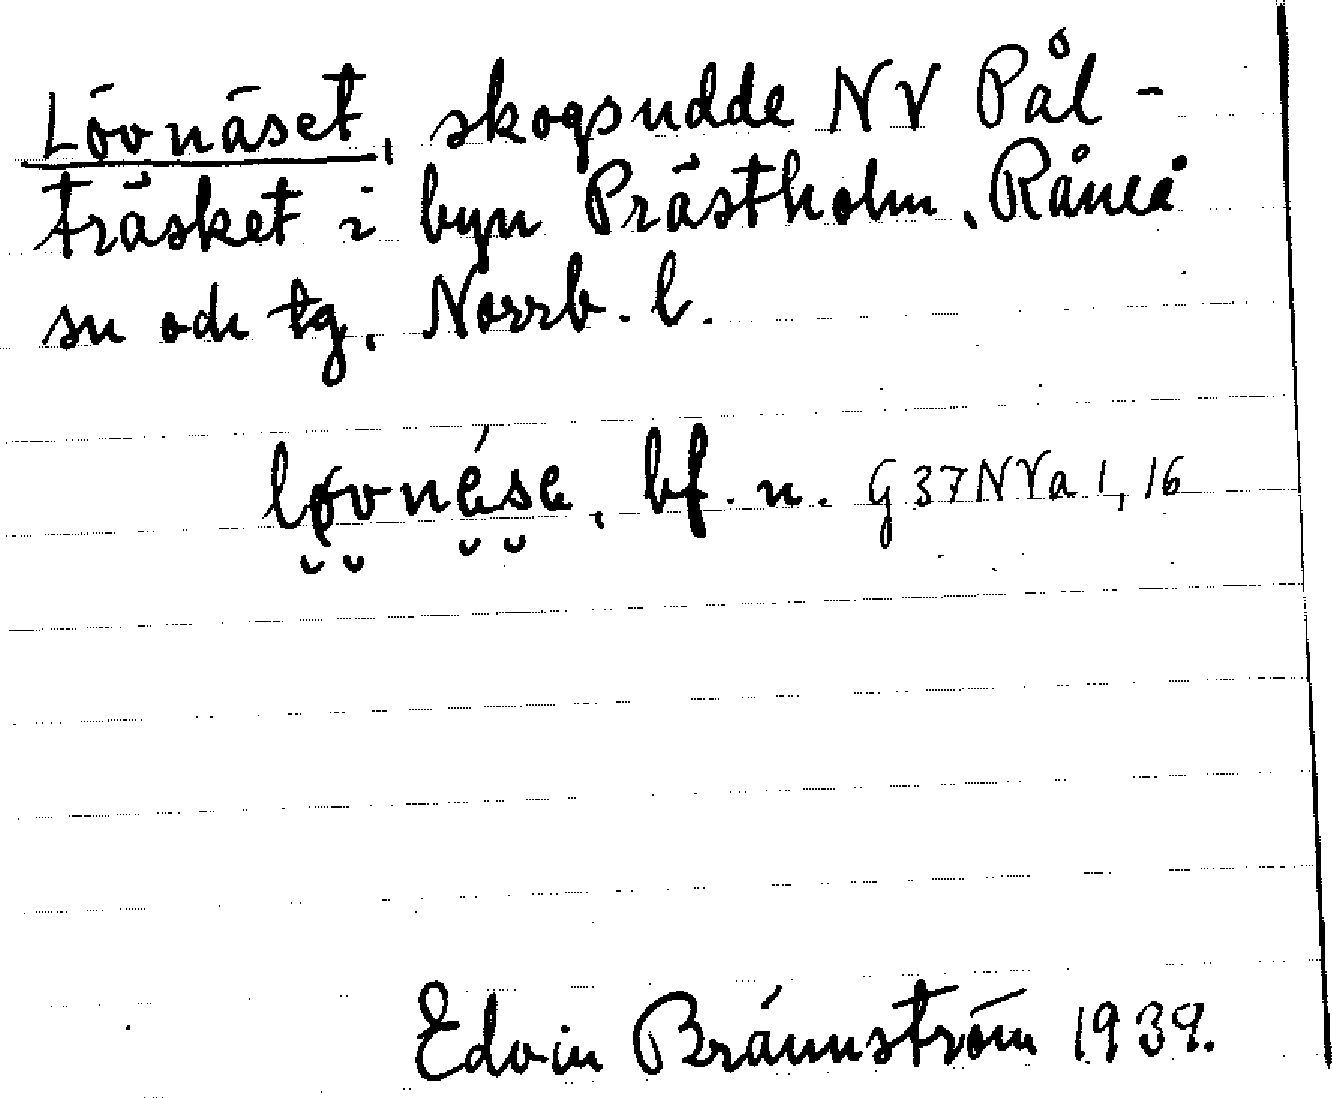 Lövnäset, skogsudde NV Pål-
träsket i byn Prästholm, Råneå
sn och tg, Norrb. l.
løvnése, bf. n. G37NVa 1, 16
Edvin Brännström 1939.